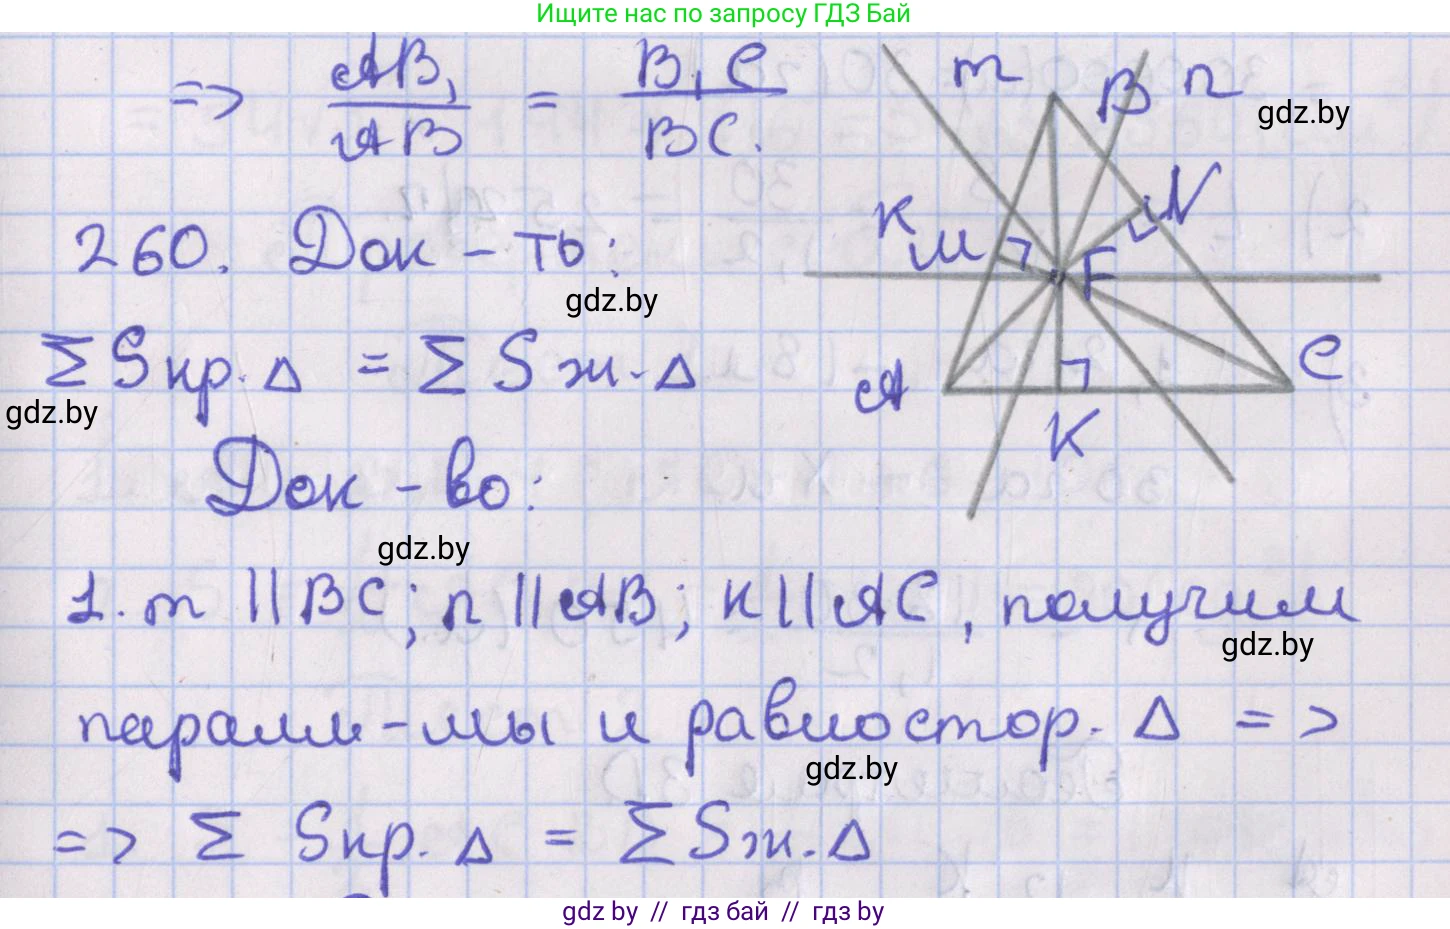 Ищите нас по запросу ГДЗ Бай
=> AB₁/AB = B₁C/BC.
m B n
gdz.by
K M N
F
260. Док-ть:
gdz.by
ΣSкр.Δ = ΣSж.Δ
A C
gdz.by
K
Док-во:
gdz.by
1. m || BC; n || AB; K || AC, получим
gdz.by
паралл-мы и равностор. Δ =>
gdz.by
=> Σ Sкр.Δ = ΣSж.Δ
gdz by // гдз бай // гдз by